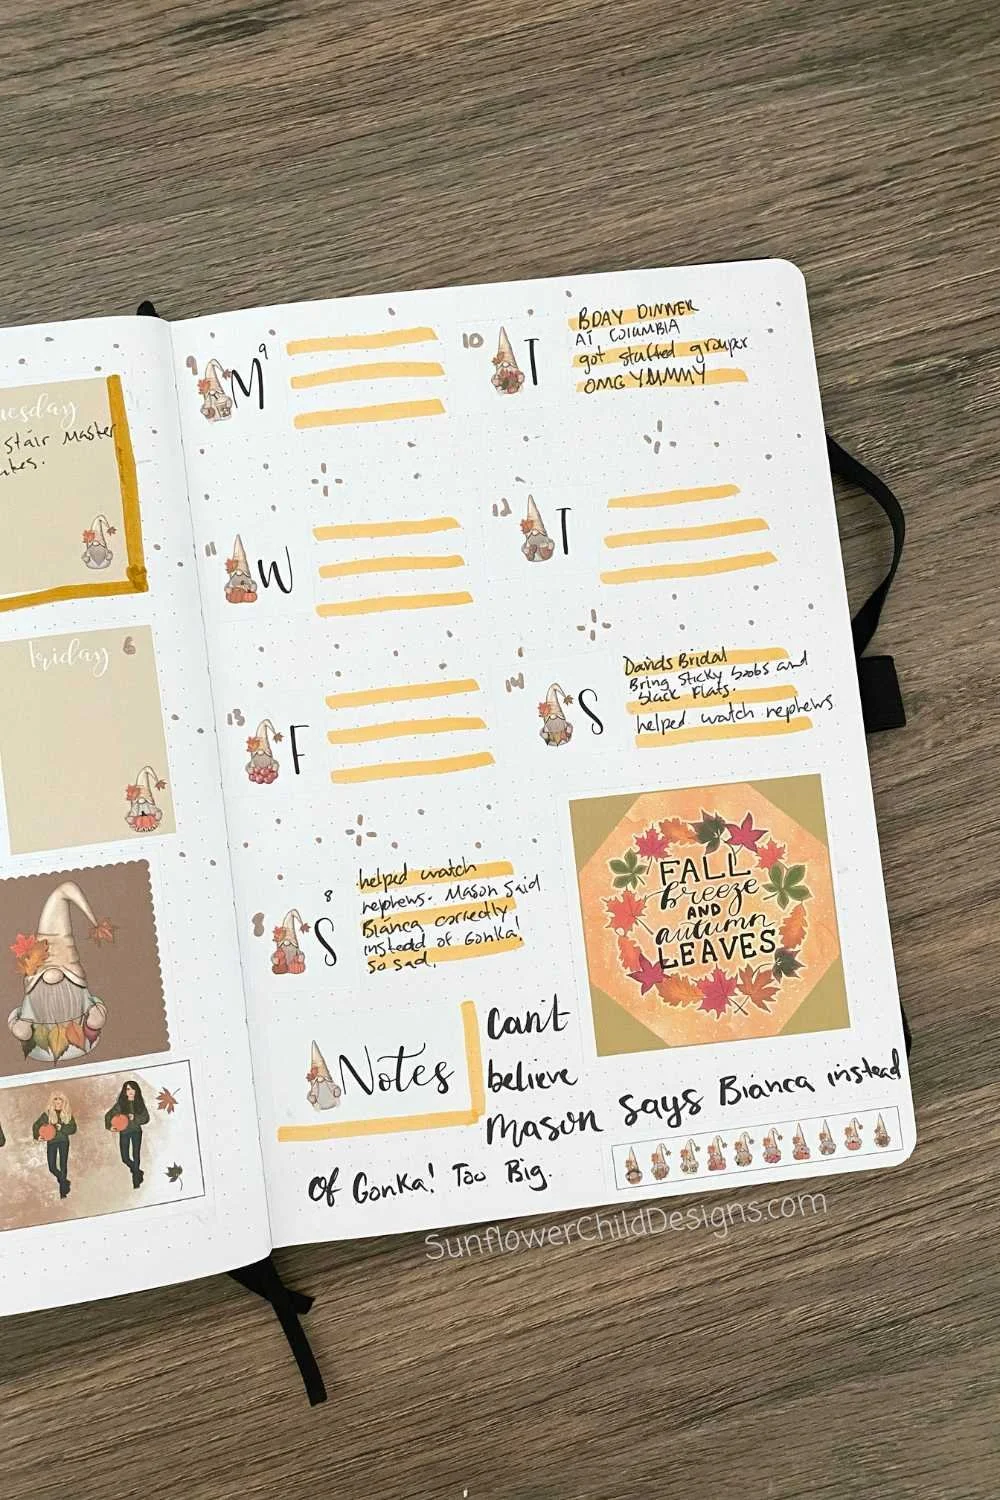 uesday
stair Master
Friday 6
9 M 9
10 T
BDAY DINNER
AT COlUMBIA
got stuffed grouper
OMG YUMMY
11 W
12 T
13 F
14 S
Davids Bridal
Bring Sticky boobs and
black Flats.
helped watch nephews
8 S 8
helped watch
nephews. Mason Said
Bianca correctly
instead of Gonka!
so sad.
FALL
breeze
AND
autumn
LEAVES
Notes
Can't
believe
Mason says Bianca instead
of Gonka! Too Big.
SunflowerChildDesigns.com